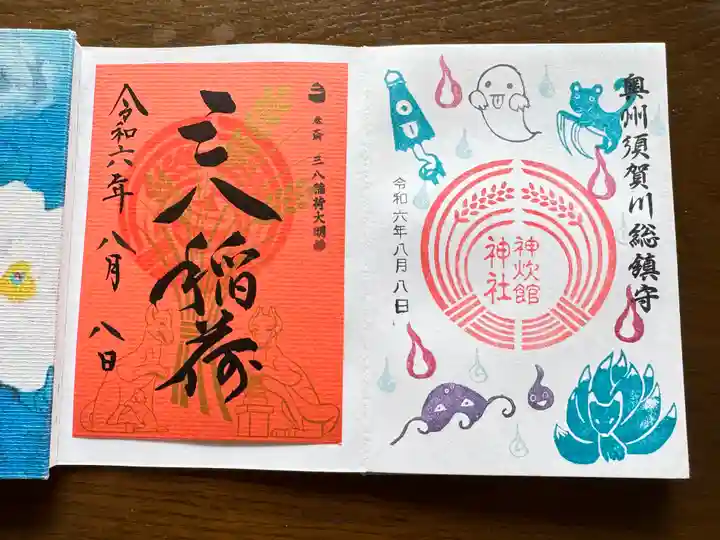 奥州須賀川総鎮守
神炊館
神社
令和六年八月八日
三八稲荷大明神
三八稲荷
令和六年 八月 八日